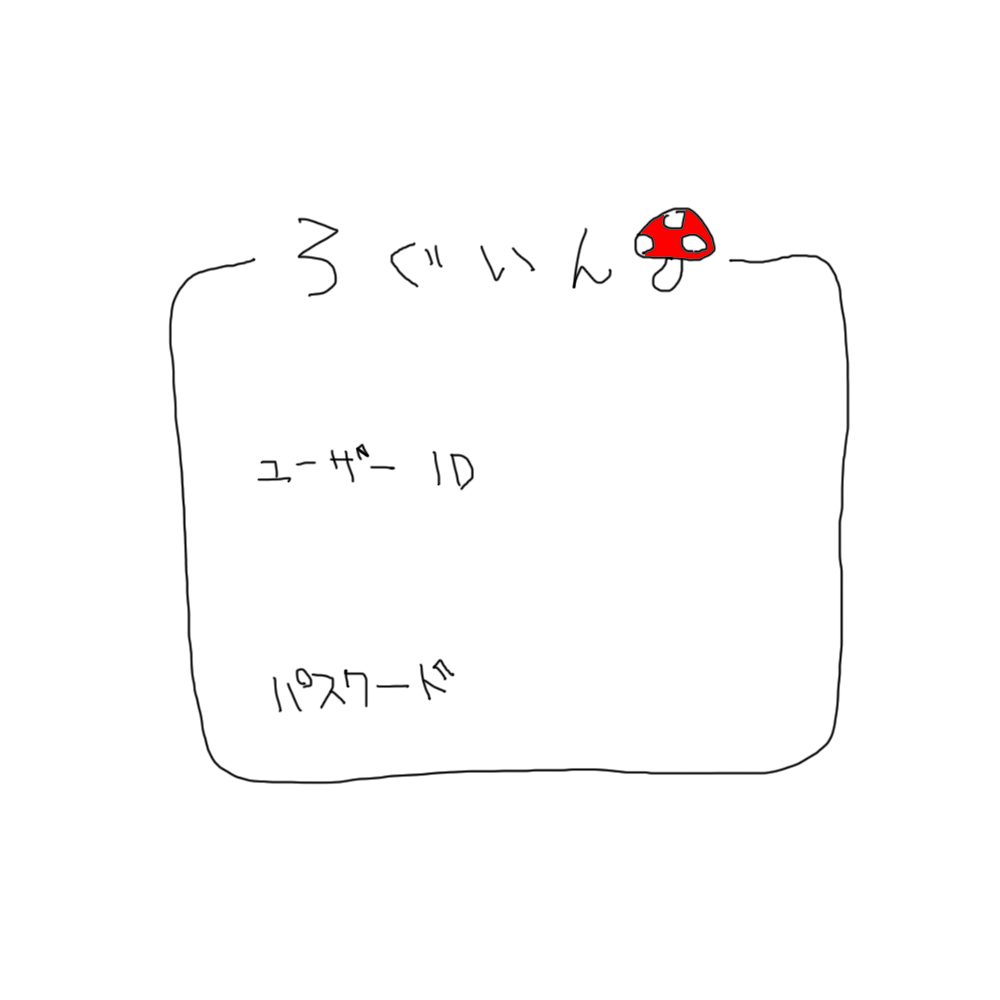 ろぐいん
ユーザー ID
パスワード